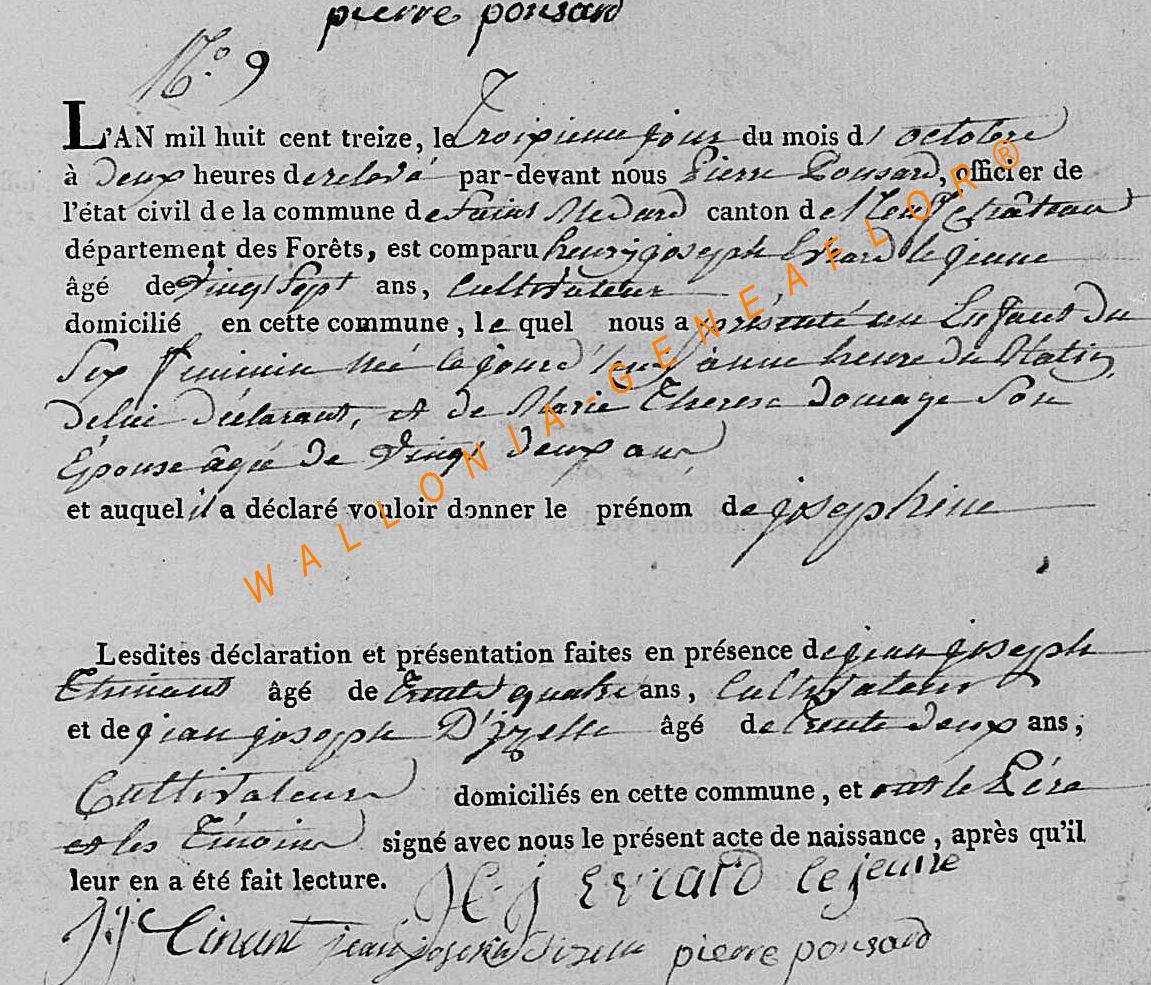 pierre ponsard
N.º 9
L'AN mil huit cent treize, le Troisieme jour du mois d' octobre
à deux heures de relevé par-devant nous Pierre Ponsard, officier de
l'état civil de la commune de Saint Medard canton de Neufchâteau
département des Forêts, est comparu henry joseph Evrard le jeune
âgé de vingt Sept ans, Cultivateur
domicilié en cette commune, le quel nous a présenté un Enfant du
Sex feminin née le jourd'huy à une heure du Matin
de lui déclarant, et de Marie Therese domage Son
Epouse âgée de vingt deux ans
et auquel il a déclaré vouloir donner le prénom de josephine
Lesdites déclaration et présentation faites en présence de jean joseph
âgé de trente quatre ans, Cultivateur
et de jean joseph D'izelle âgé de trente deux ans,
Cultivateur domiciliés en cette commune, et ont le Pére
et les Témoins signé avec nous le présent acte de naissance, après qu'il
leur en a été fait lecture. H j Evrard le jeune
jean joseph dizelle pierre ponsard
WALLONIA-GENEAFLOR®